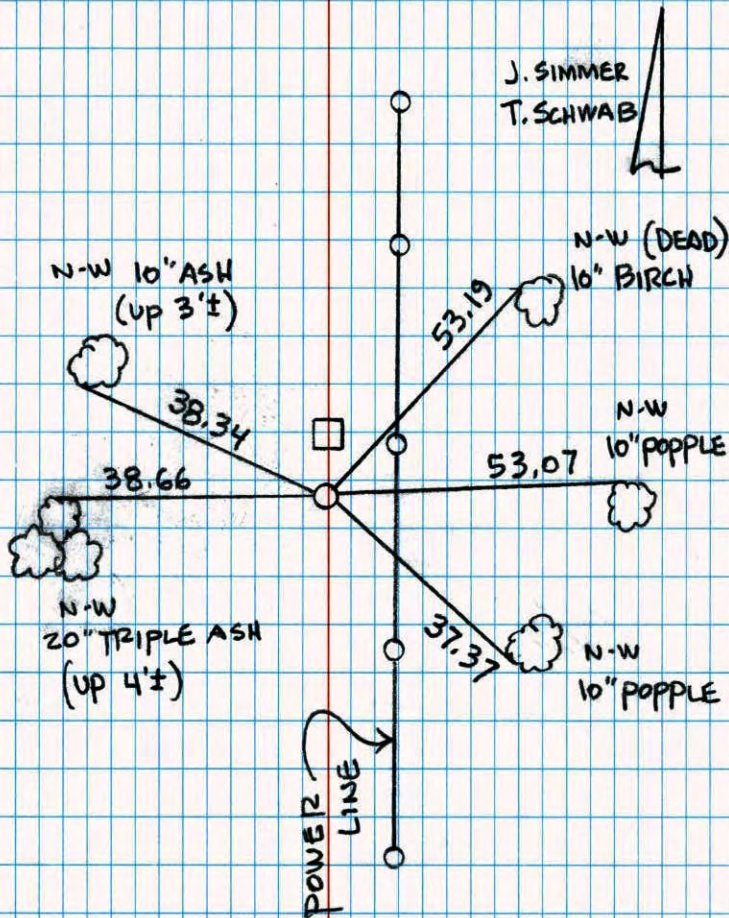 J. SIMMER
T. SCHWAB
N-W (DEAD)
10" BIRCH
N-W 10" ASH
(up 3'±)
53.19
38.34
N-W
10" POPPLE
53.07
38.66
N-W
20" TRIPLE ASH
(up 4'±)
37.37
N-W
10" POPPLE
POWER
LINE